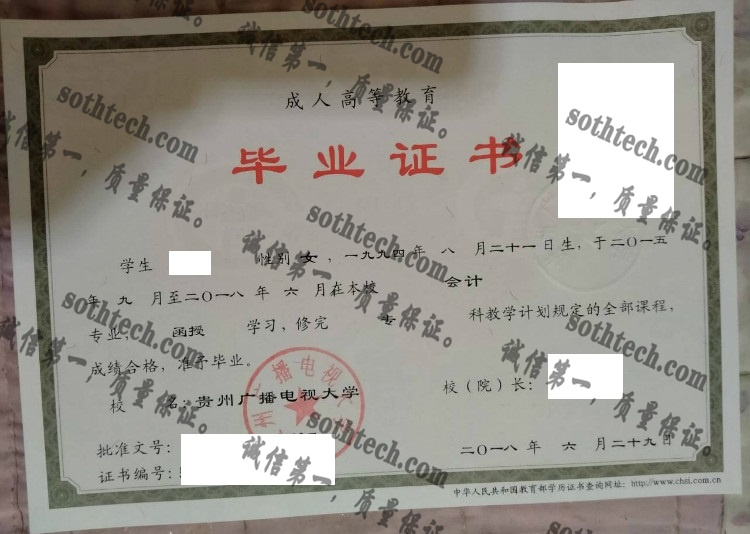 成人高等教育
毕业证书
学生 性别 女，一九九四年 八 月二十一日生，于二〇一五
年 九 月至二〇一八 年 六 月在本校 会计
专业， 函授 学习，修完 专 科教学计划规定的全部课程，
成绩合格，准予毕业。
校 名：贵州广播电视大学
校（院）长：
批准文号：
证书编号：
二〇一八 年 六 月二十九日
中华人民共和国教育部学历证书查询网址：http://www.chsi.com.cn
sothtech.com
诚信第一，质量保证。
sothtech.com
诚信第一，质量保证。
sothtech.com
诚信第一，质量保证。
sothtech.com
诚信第一，质量保证。
sothtech.com
诚信第一，质量保证。
sothtech.com
诚信第一，质量保证。
sothtech.com
诚信第一，质量保证。
sothtech.com
诚信第一，质量保证。